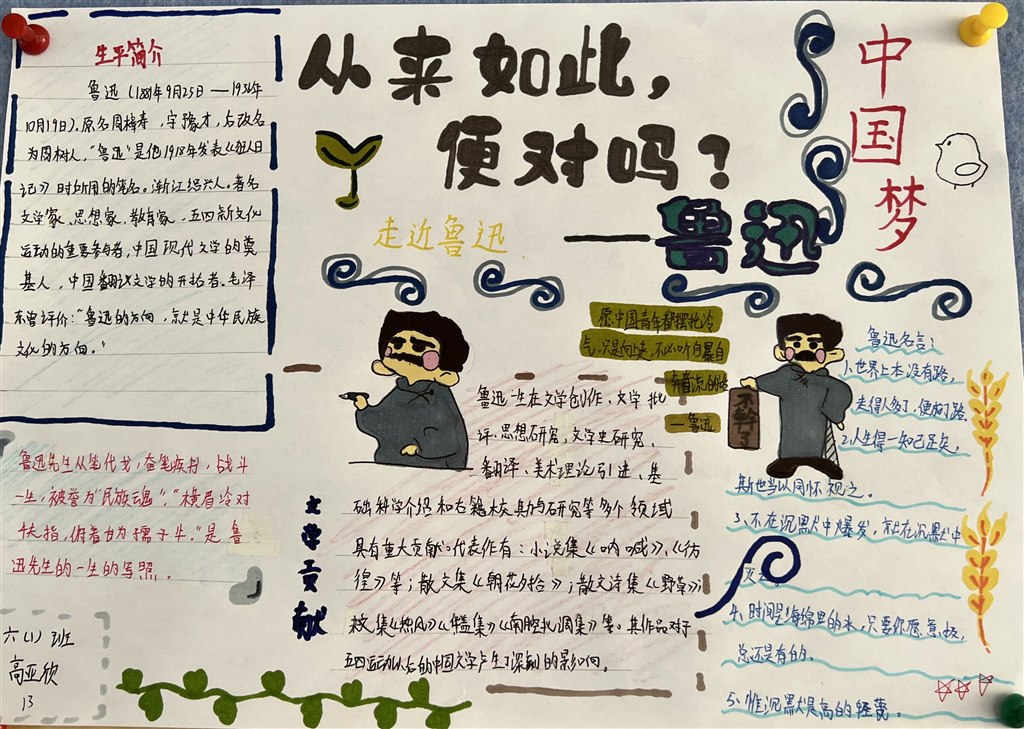 从来如此，
便对吗？
—鲁迅
中国梦
走近鲁迅
生平简介
鲁迅（1881年9月25日——1936年
10月19日），原名周樟寿，字豫才，后改名
为周树人，"鲁迅"是他1918年发表《狂人日
记》时所用的笔名。浙江绍兴人。著名
文学家、思想家、教育家、五四新文化
运动的重要参与者，中国现代文学的奠
基人，中国翻译文学的开拓者。毛泽
东曾评价："鲁迅的方向，就是中华民族
文化的方向。"
鲁迅先生从笔代戈，奋笔疾书，战斗
一生，被誉为"民族魂"，"横眉冷对
千夫指，俯首甘为孺子牛。"是鲁
迅先生的一生的写照。
六（1）班
高亚欣
13
愿中国青年都摆脱冷
气，只是向上走，不必听自暴自
弃者流的话
—鲁迅
不干了
文学贡献
鲁迅一生在文学创作、文学批
评、思想研究、文学史研究、
翻译、美术理论引进、基
础科学介绍和古籍校勘与研究等多个领域
具有重大贡献。代表作有：小说集《呐喊》、《彷
徨》等；散文集《朝花夕拾》；散文诗集《野草》；
杂文集《热风》《华盖集》《南腔北调集》等。其作品对于
五四运动以后的中国文学产生了深刻的影响。
鲁迅名言：
1、世界上本没有路，
走得人多了，便成了路
2、人生得一知己足矣，
斯世当以同怀视之。
3、不在沉默中爆发，就在沉默中
灭亡。
4、时间是海绵里的水，只要你愿意挤，
总还是有的。
5、惟沉默是最高的轻蔑。